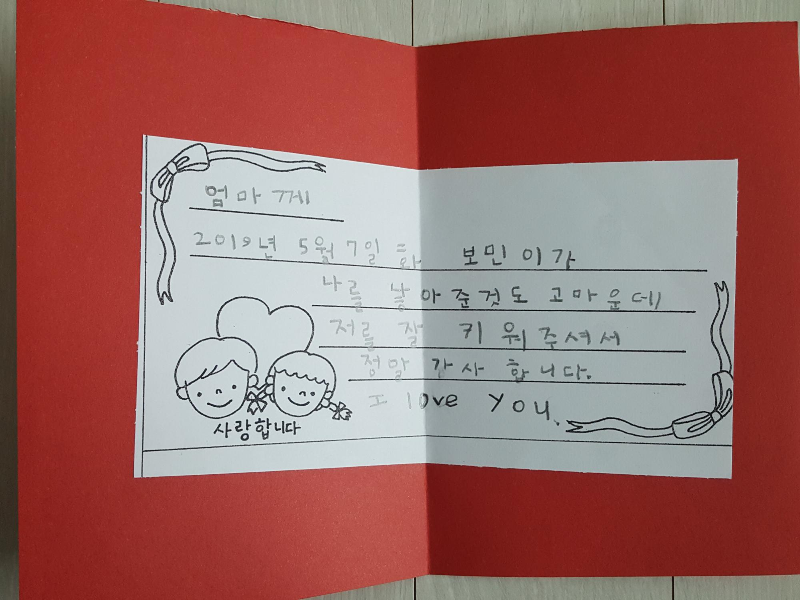 엄마께
2019년 5월 7일 화 보민이가
나를 낳아준것도 고마운데
저를 잘 키워주셔서
정말 감사합니다.
I love you.
사랑합니다